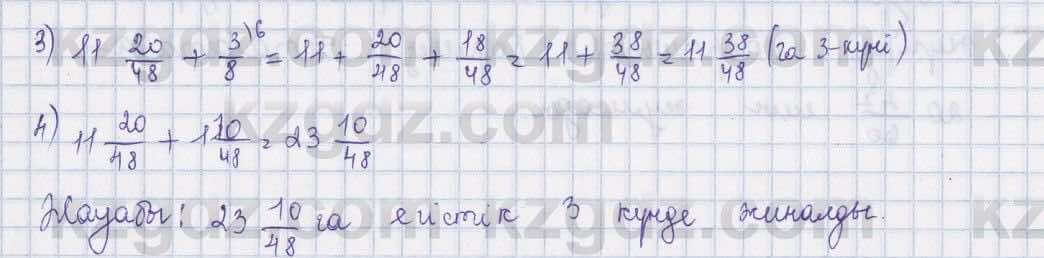 3) 11 20/48 + 3/8 )6 = 11 + 20/48 + 18/48 = 11 + 38/48 = 11 38/48 (га 3-күні)
4) 11 20/48 + 11 70/48 = 23 10/48
Жауабы: 23 10/48 га егістік 3 күнде жиналды.
kzgdz.com